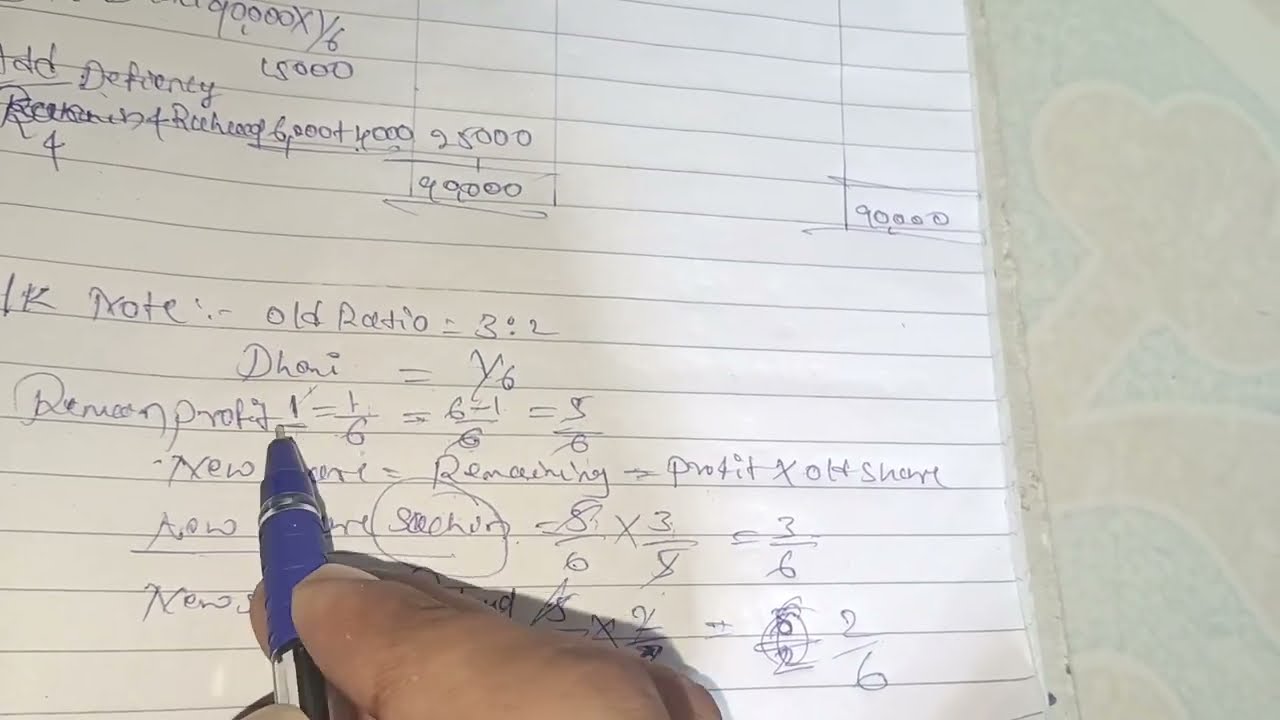 90,000X1/6
15000
Add Defiency
6,000+4,000 25000
4
90,000
90,000
Note:- Old Ratio = 3:2
Dhoni = 1/6
profit 1 = 1/6 = 6-1/6 = 5/6
New = Remaining = profit X old share
New (Sachin) = 5/6 X 3/5 = 3/6
New X 2 = 2/6